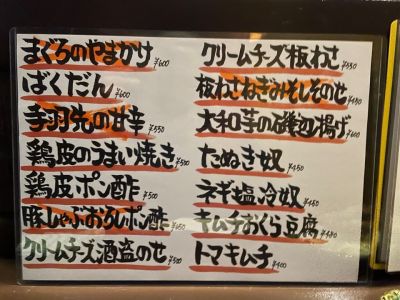 まぐろのやまかけ ¥600
ばくだん ¥600
手羽先の甘辛 ¥550
鶏皮のうまい焼き ¥500
鶏皮ポン酢 ¥500
豚しゃぶおろしポン酢 ¥650
クリームチーズ酒盗のせ ¥500
クリームチーズ板わさ ¥550
板わさねぎみそしそのせ ¥450
大和芋の磯辺揚げ ¥600
たぬき奴 ¥450
ネギ塩冷奴 ¥450
キムチおくら豆腐 ¥450
トマキムチ ¥400